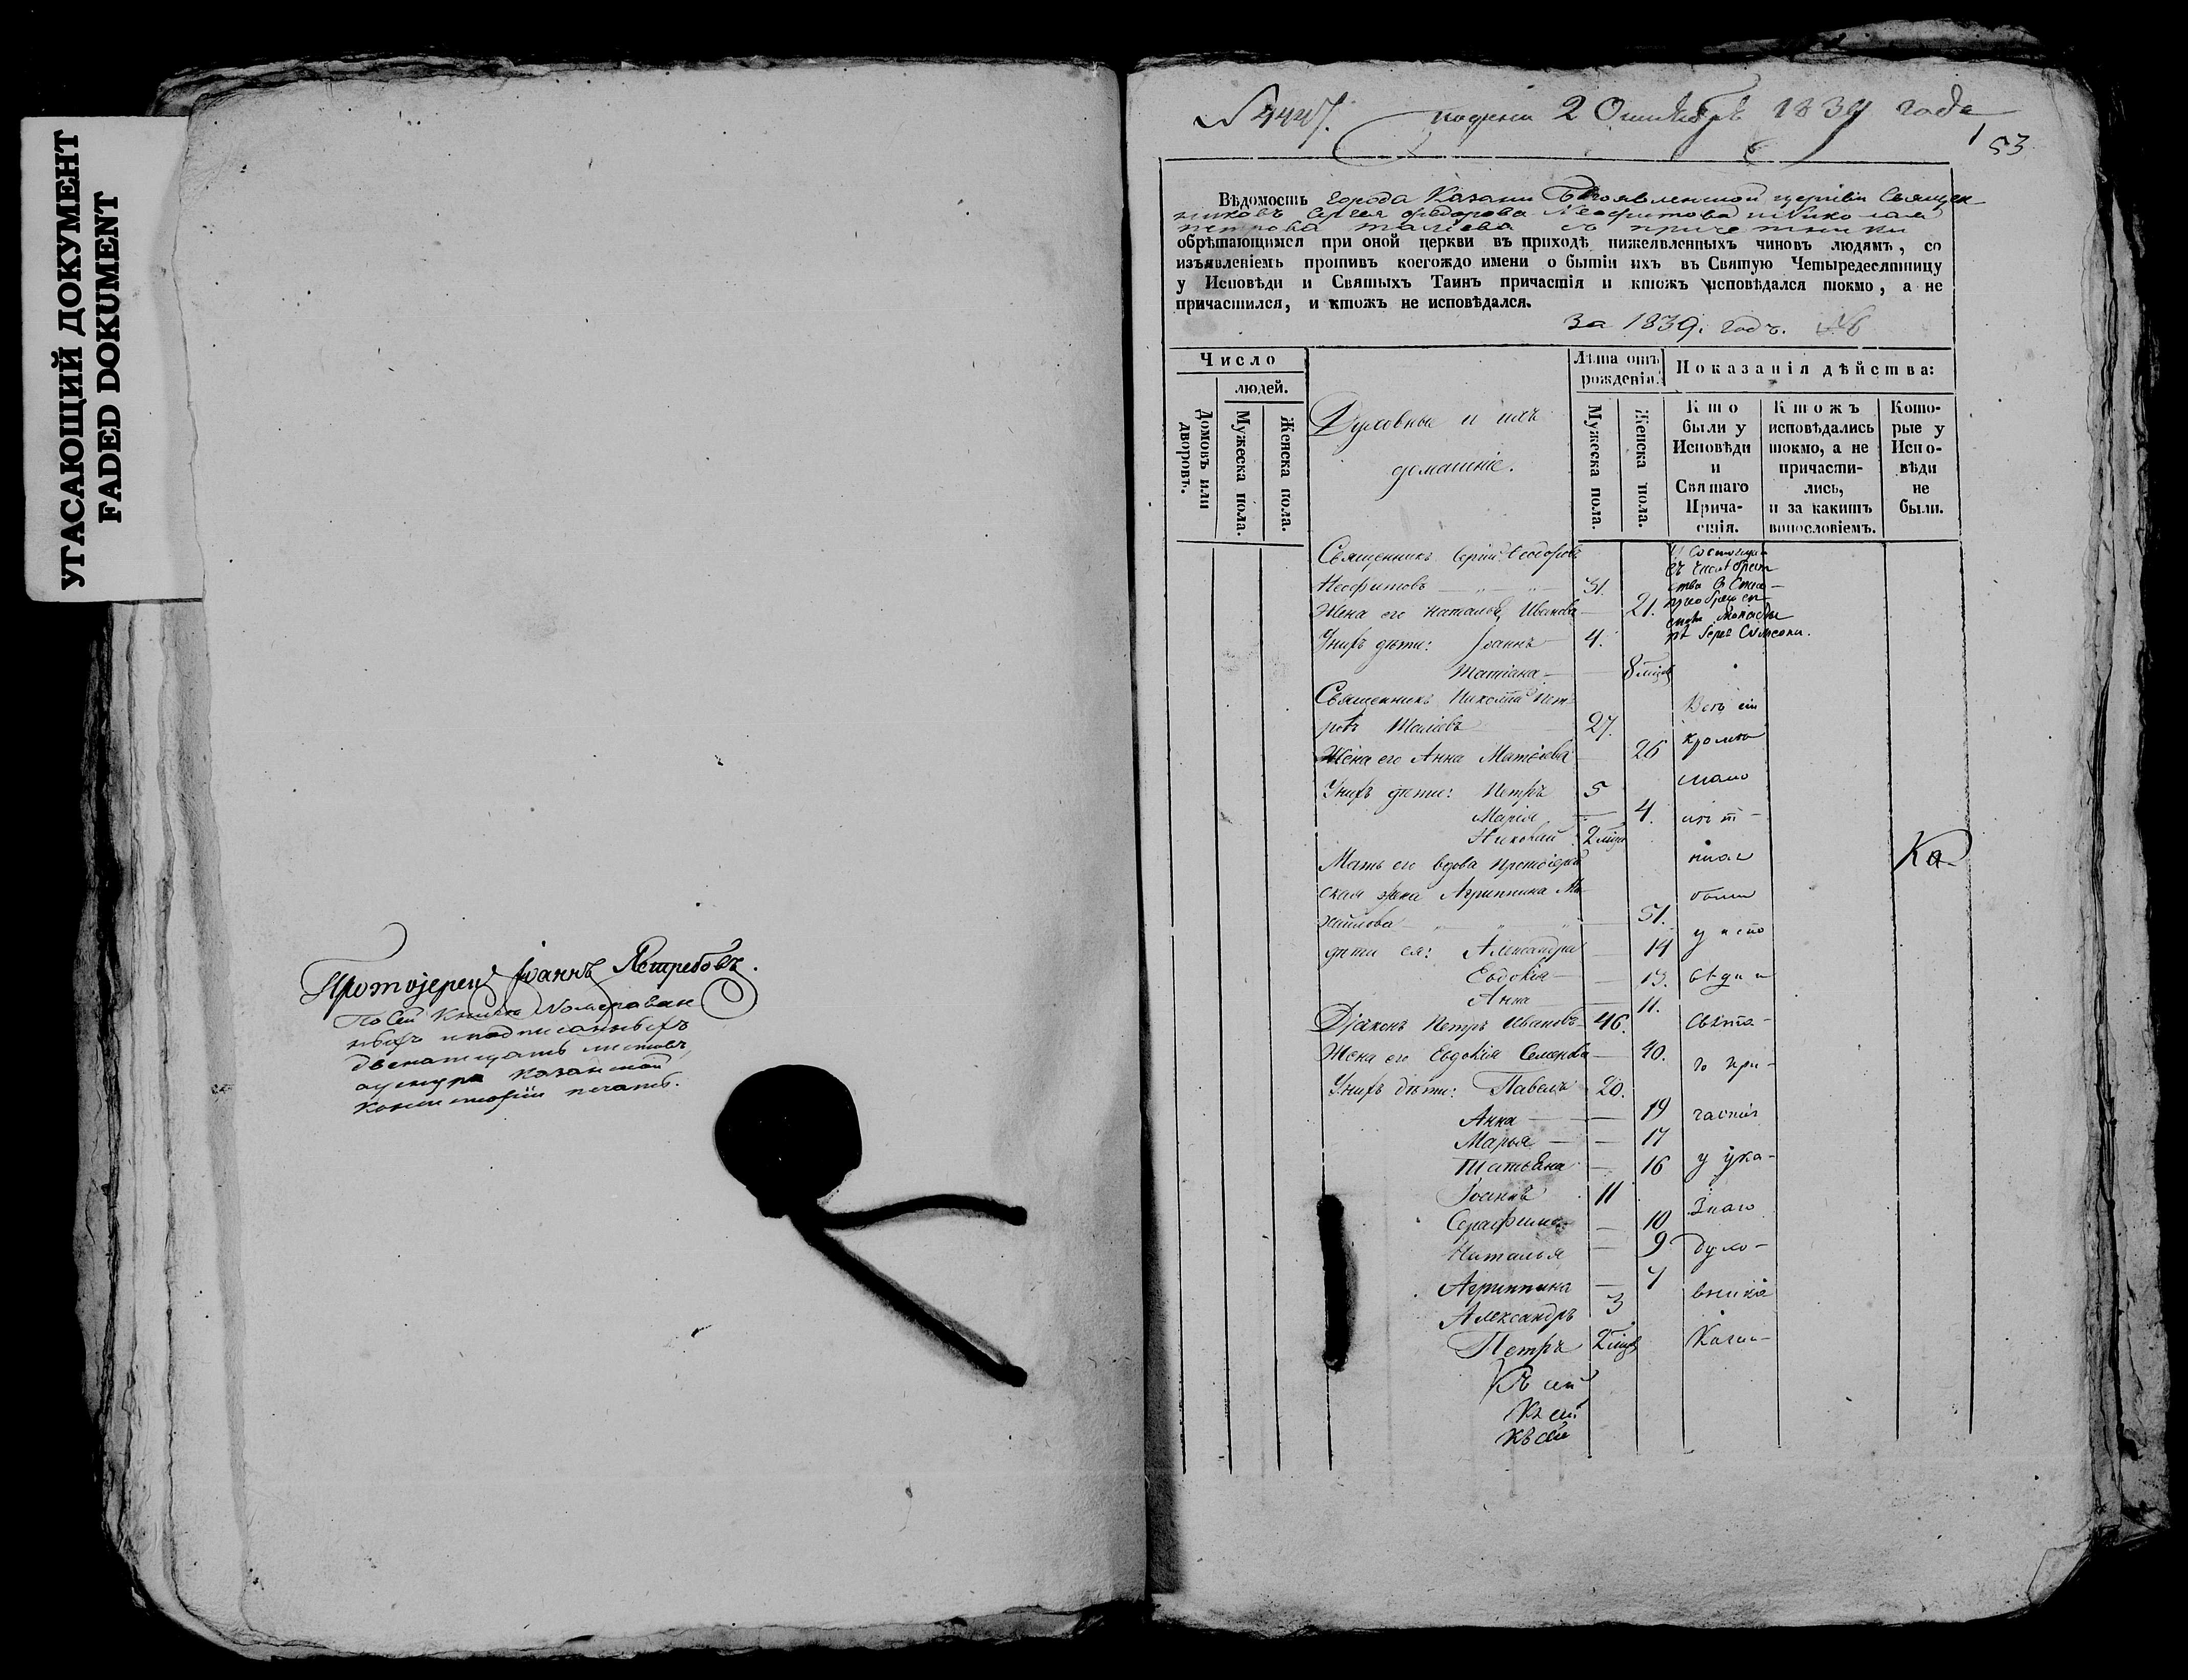 УГАСАЮЩИЙ ДОКУМЕНТ
FADED DOKUMENT
Протоіерей Іоаннъ Ястребовъ.
По сей книге номерован
ныхъ и подписанныхъ
двенатцать листовъ,
Казанской
Консисторіи печать.
№ 4447. 2 Октября 1839 года
153
Вѣдомость города Казани Богоявленской церкви Священ-
никовъ Сергея Федорова Неофитова и Николая
Петрова Таліева с причетники
обрѣтающимся при оной церкви въ приходѣ нижеявленныхъ чиновъ людямъ, со
изъявленіемъ противъ коегождо имени о бытіи ихъ въ Святую Четыредесятницу
у Исповѣди и Святыхъ Таинъ причастія и ктожъ исповѣдался токмо, а не
причастился, и ктожъ не исповѣдался.
За 1839. годъ.
Число
людей.
Домовъ или дворовъ.
Мужеска пола.
Женска пола.
Духовные и ихъ
домашніе.
Лѣта отъ
рожденія.
Мужеска пола.
Женска пола.
Показанія дѣйства:
Кто
были у
Исповѣди
и
Святаго
Прича-
стія.
Ктожъ
исповѣдались
токмо, а не
причасти-
лись,
и за какимъ
винословіемъ.
Кото-
рые у
Испо-
вѣди
не
были.
Священникъ Сергій Ѳеодоровъ
Неофитовъ 31.
Жена его Наталья Иванова 21.
У нихъ дѣти: Іоаннъ 4.
Татіана 8 мцов
Священникъ Николай Пет-
ровъ Таліевъ 27.
Жена его Анна Матѳіева 26
У нихъ дѣти: Петръ 5
Марія 4.
Николай 2 мца
Мать его вдова протоіерей
ская жена Агриппина Ми
хайлова 51.
дѣти ея: Александра 14
Евдокія 13.
Анна 11.
Діаконъ Петръ Ивановъ 46.
Жена его Евдокія Семенова 40.
У нихъ дѣти: Павелъ 20.
Анна 19
Марья 17
Татьяна 16
Іоаннъ 11
Серафима 10
Наталья 9
Агриппина 7
Александръ 3
Петръ 2 мцов
Къ сей
Къ сей
Къ сей
Всѣ сіи
кромѣ
у испо
вѣди и
Свята-
го при-
частія
у ука-
знаго
духо-
вника
Ка